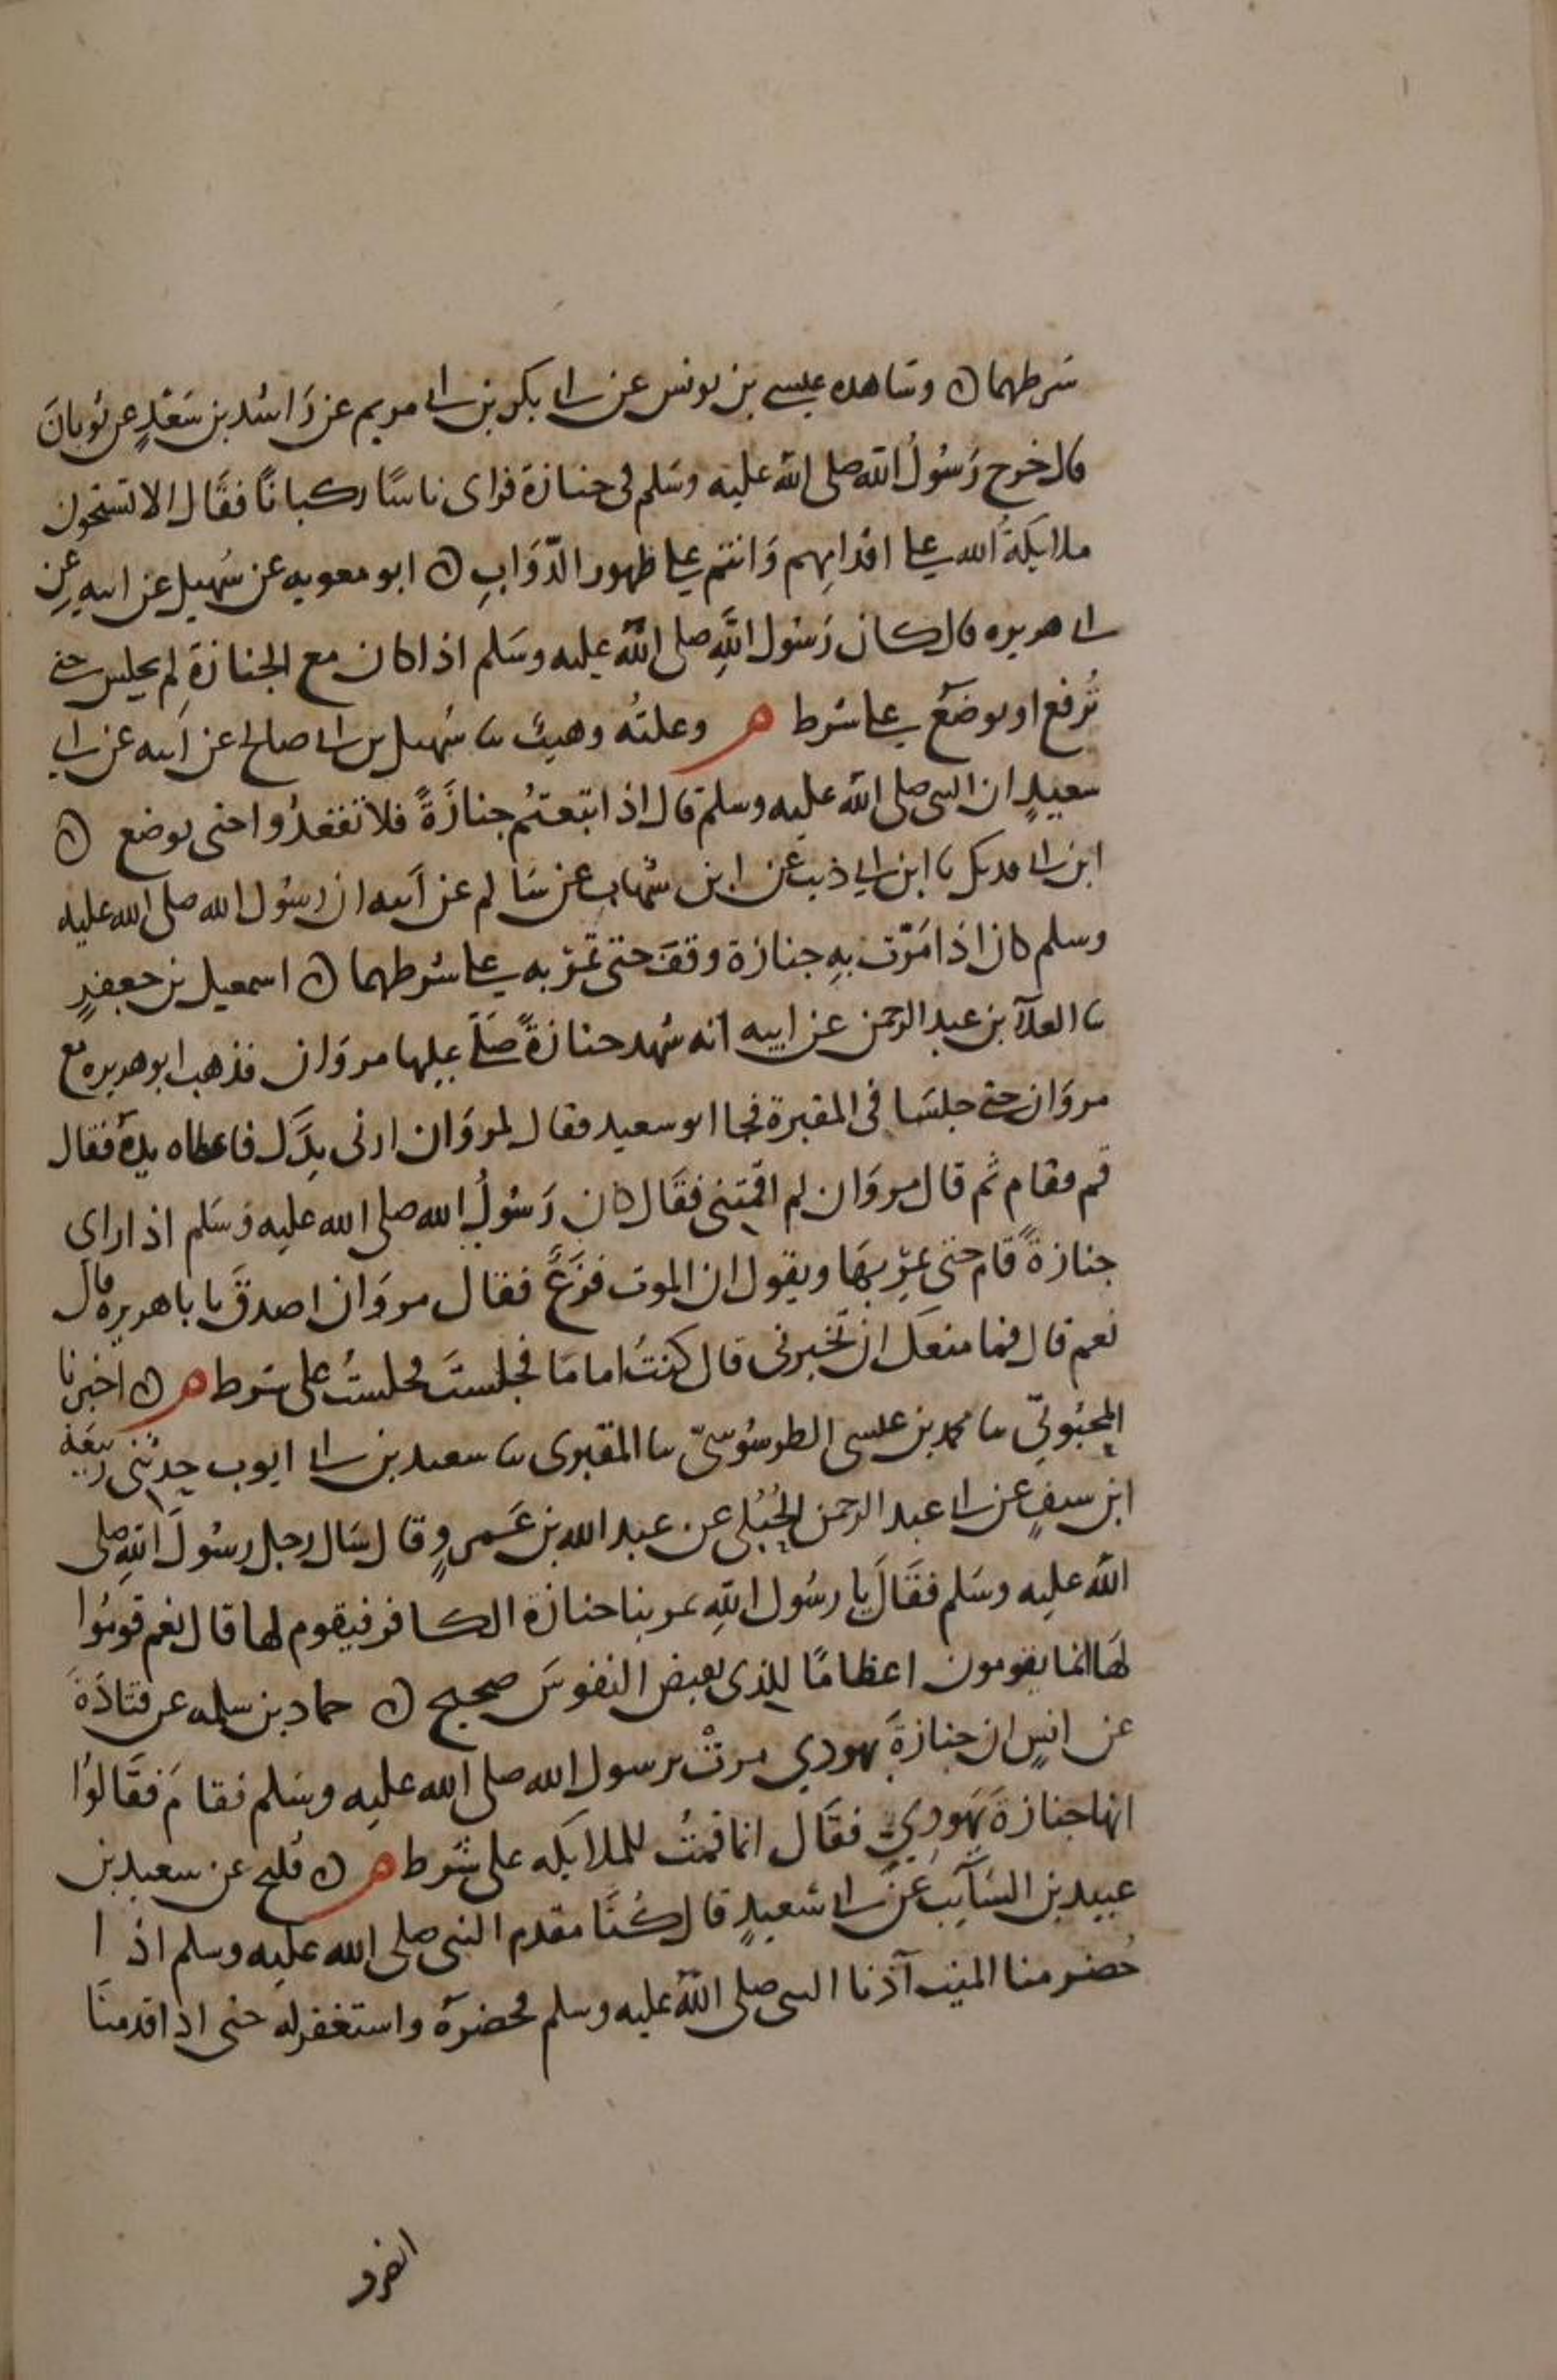 شرطهما ه وشاهده عيسى بن يونس عن ابى بكر بن ابى مريم عن رَاشد بن سَعْدٍ عن ثوبانَ
قال خرج رَسُولُ الله صلى الله عليه وسَلم فى جنازة فراى ناسًا ركبانًا فقَال الا تستحون
ملايكَةُ الله على اقدامِهم وَانتم على ظهور الدّوَابِ ه ابو معويه عن سُهيل عن ابيه عن
ابى هريره قال كان رَسُول اللهِ صلى الله عليه وسَلم اذا كان مع الجنازةِ لم يجلس حتى
تُرفع او توضَعَ على شرط م وعلتُه وهيبٌ نا سُهيل بن ابى صالح عن اَبيه عن ابى
سعيدٍ ان النبى صلى الله عليه وسلم قال اذا اتبعتُم جنازَةً فلا تقعدُوا حتى توضع ه
ابن ابى فديك نا ابن ابى ذيب عن ابن شهابٍ عن سَالم عن اَبيه ان رسُول الله صلى الله عليه
وسلم كان اذا مَرّت بهِ جنازة وقفَ حتى تمرّ به على شرطهما ه اسمعيل بن جعفرٍ
نا العلآ بن عبد الرحمن عن ابيه انه شهد جنازةً صَلّى عليها مروَان فذهب ابو هريره مع
مروَان حتى جلسَا فى المقبرة فجا ابو سعيد فقال لمروَان ارنى يدَك فاعطاه يدهُ فقال
قم فقام ثم قال مروَان لم اقمتنى فقَال كان رَسُولُ الله صلى الله عليه وَسَلم اذا راى
جنازةً قام حتى يمرّ بهَا ويقول ان الموت فزَعٌ فقال مروَان اصدقَ يا با هريره قال
نعم قال فما منعكَ ان تخبرنى قال كنتُ امامَا فجلستَ فجلستُ على شرط م ه اخبرنا
المحبُوبىّ نا محمد بن عيسى الطرسُوسىّ نا المقبرى نا سعيد بن ابى ايوب حدثنى ربيعَة
ابن سيفٍ عن ابى عبد الرحمن الحُبُلى عن عبد الله بن عَمرٍو قال سَال رجل رسُولَ الله صلى
الله عليه وسَلم فقَالَ يا رسُول اللهِ تمر بنا جنازة الكافر فيقوم لها قال نعم قومُوا
لهَا انما يقومون اعظامًا للذى يقبض النفوسَ صحيح ه حماد بن سلمه عن قتادَةَ
عن انسٍ ان جنازةَ يهودي مرتْ برسول الله صلى الله عليه وسَلم فقامَ فقَالوُا
انها جنازةَ يَهوديٍ فقَال انما قمتُ للملايكه على شَرط م ه فُليح عن سعيد بن
عبيد بن السَّايب عن ابى سَعيدٍ قال كنَّا مقدم النبى صلى الله عليه وسلم اذا
حُضر منا الميت آذنا النبى صلى الله عليه وسلم فحضرَه واستغفر له حتى اذا قدمنَا
انصرف